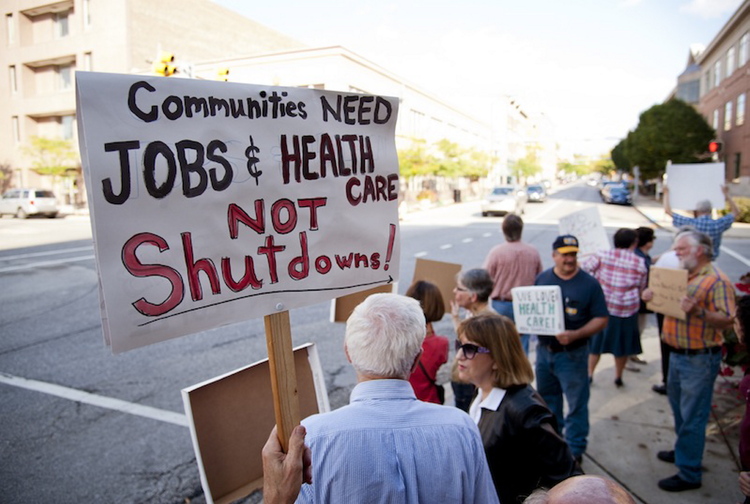 Communities NEED
JOBS & HEALTH
CARE
NOT
Shutdowns!
WE LOVE
HEALTH
CARE!